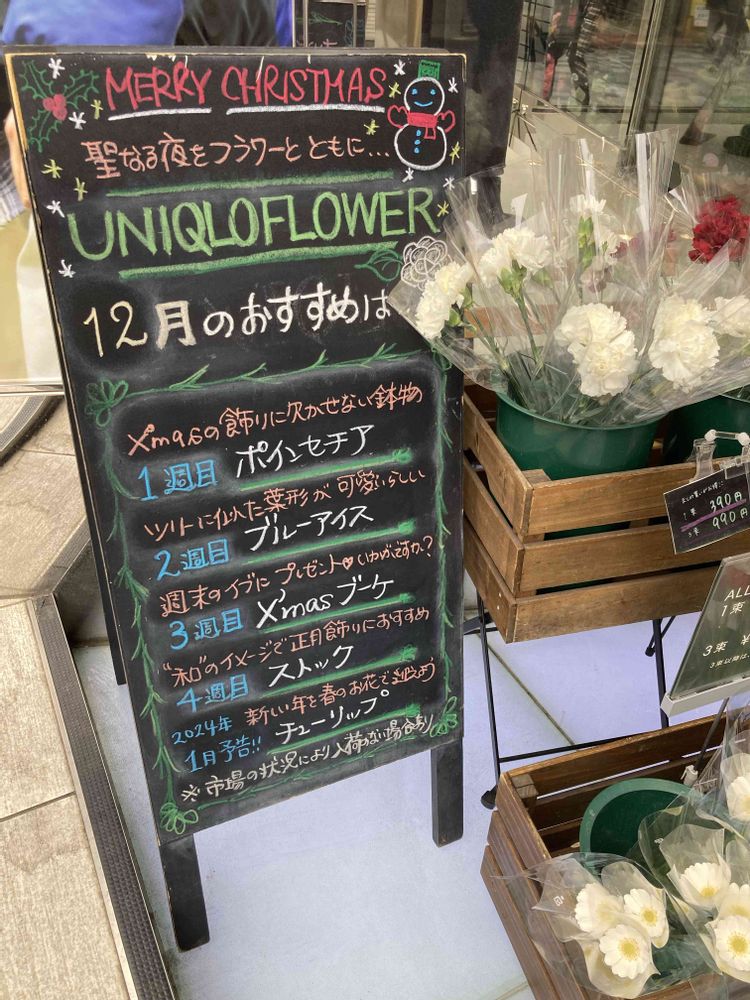 MERRY CHRISTMAS
聖なる夜をフラワーと ともに...
UNIQLO FLOWER
12月のおすすめは
X'masの飾りに欠かせない鉢物
1週目 ポインセチア
ツリーに似た葉形が可愛いらしい
2週目 ブルーアイス
週末のイブに プレゼント♥いかがですか?
3週目 X'mas ブーケ
"和"のイメージで正月飾りにおすすめ
4週目 ストック
2024年 新しい年を春のお花で迎えよう
1月予告!! チューリップ
※市場の状況により入荷のない場合あり
1束 390円
990円
ALL
1束
3束 ¥
3束以降は